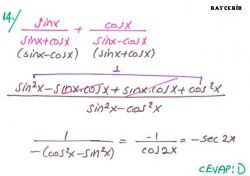 BAYCEBİR
14/ sinx/(sinx+cosx) + cosx/(sinx-cosx)
(sinx-cosx) (sinx+cosx)
1
(sin²x - sinx·cosx + sinx·cosx + cos²x)/(sin²x - cos²x)
1/(-(cos²x - sin²x)) = -1/cos2x = -sec2x
CEVAP: D